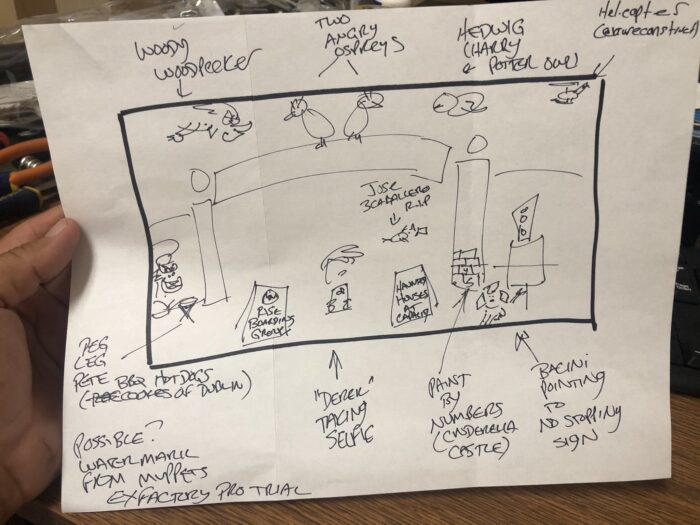 WOODY
WOODPECKER
TWO
ANGRY
OSPREYS
HEDWIG
(HARRY
POTTER OWL)
HELICOPTER
JOSE
3CABALLERO
R.I.P
RISE
BOARDING
GROUP
HAUNTED
HOUSES
AT
CAPACITY
PEG
LEG
PETE BBQ HOTDOGS
(COOKES OF DUBLIN)
"DEREK"
TAKING
SELFIE
PAINT
BY
NUMBERS
(CINDERELLA
CASTLE)
POINTING
TO
NO STOPPING
SIGN
POSSIBLE?
WATERMARK
FROM MUPPETS
PRO TRIAL